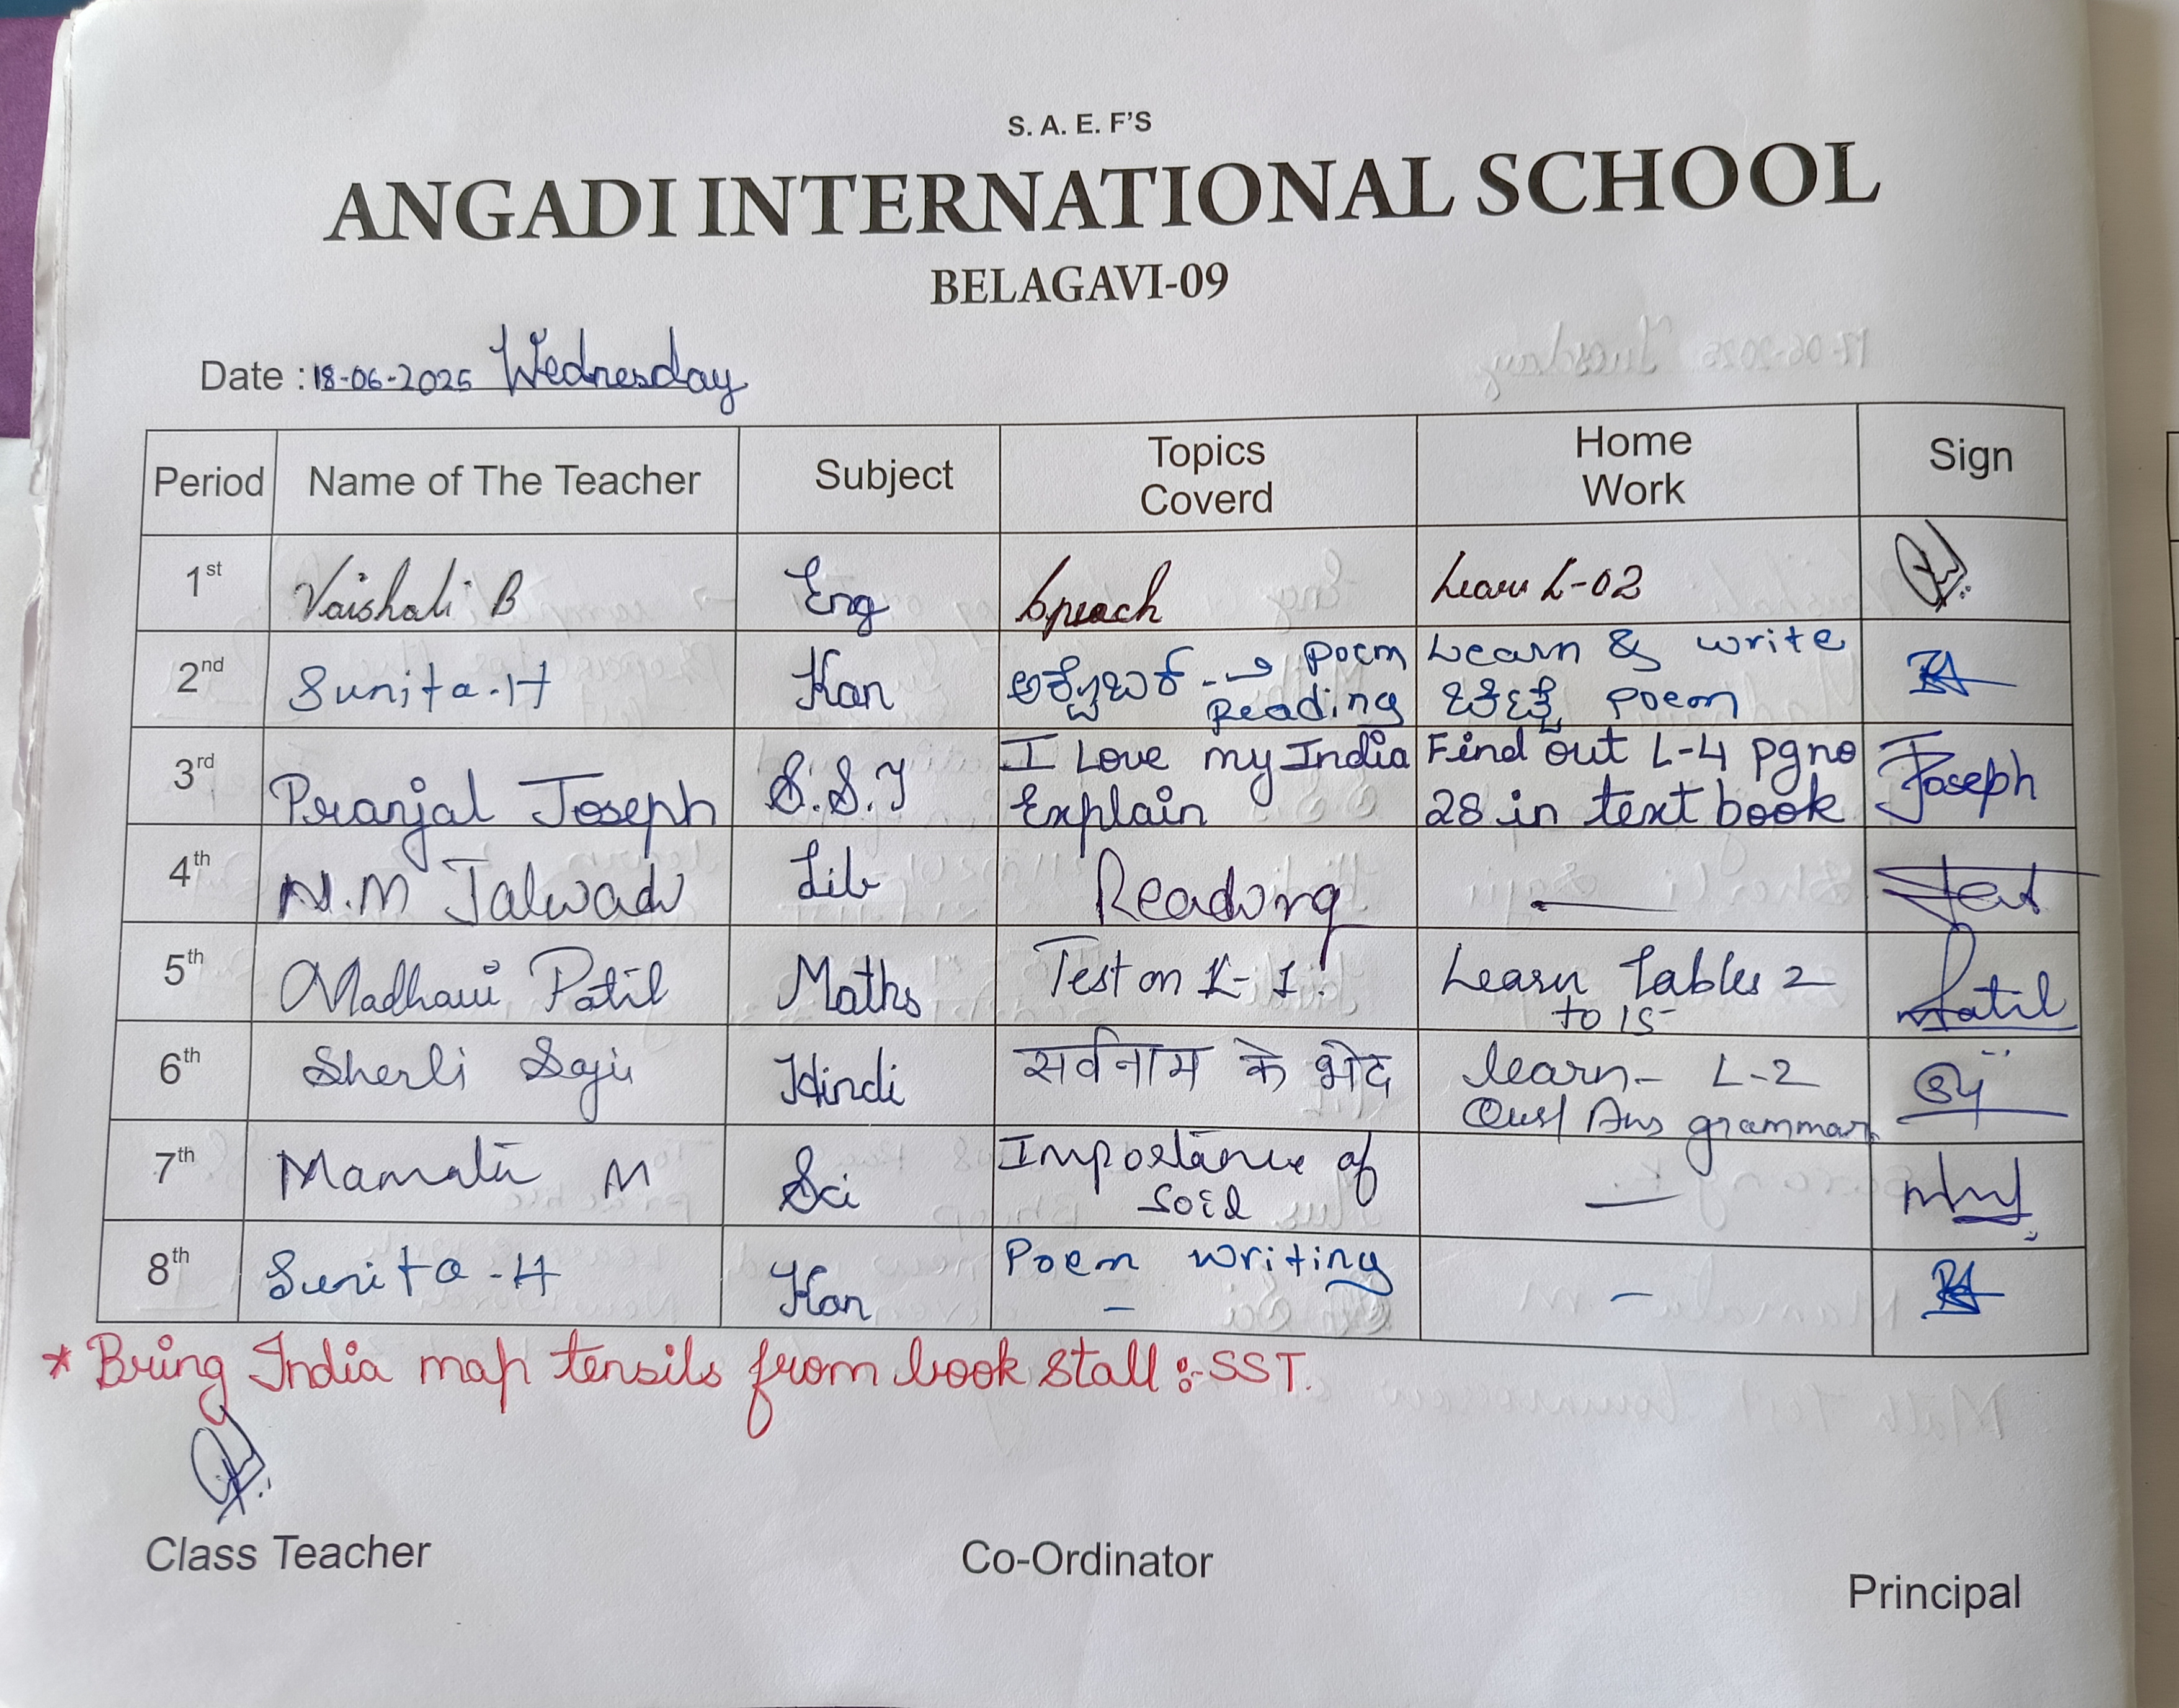 S. A. E. F'S
ANGADI INTERNATIONAL SCHOOL
BELAGAVI-09
Date : 18-06-2025 Wednesday
Period Name of The Teacher Subject Topics Coverd Home Work Sign
1st Vaishali B Eng Speach Learn L-02
2nd Sunita.H Kan ಅಕ್ಟೋಬರ್ --→ Poem Reading Learn & write ಚಿಟ್ಟೆ poem
3rd Pranjal Joseph S.S.T I Love my India Explain Find out L-4 pg no 28 in text book Joseph
4th N.M Jalwadi Lib Reading —
5th Madhavi Patil Maths Test on L-1. Learn Tables 2 to 15 Patil
6th Sherli Saju Hindi सर्वनाम के भेद learn- L-2 Ques/ Ans grammar
7th Mamata M Sci Importance of soil —
8th Sunita-H Kan Poem writing - -
* Bring India map tensils from book stall :-SST.
Class Teacher Co-Ordinator Principal